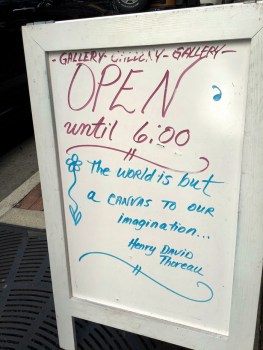 -GALLERY GALLERY-
OPEN
until 6:00
The world is but
a CANVAS TO OUR
imagination...
Henry DAVID
Thoreau